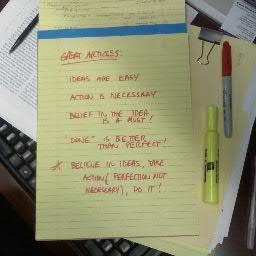 GREAT ARTICLESS:
IDEAS ARE EASY
ACTION IS NECESSARY
BELIEF IN THE IDEA
IS A MUST!
"DONE" IS BETTER
THAN PERFECT!
BELIEVE IN IDEAS, TAKE
ACTION (PERFECTION NOT
NECESSARY), DO IT!